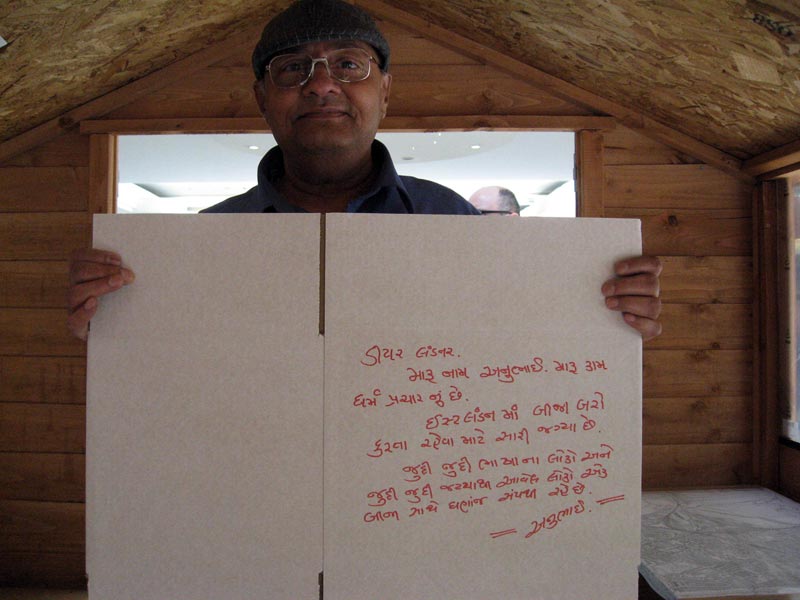 ડીયર લંડનર.
મારૂ નામ અનુભાઈ. મારૂ કામ
ધર્મ પ્રચાર નું છે.
ઈસ્ટ લંડન માં બીજા બરો
કરવા રહેવા માટે સારી જગ્યા છે.
જુદી જુદી ભાષા ના લોકો અને
જુદી જુદી જગ્યાએથી આવેલ લોકો એક
બીજા સાથે ઘણાંજ સંપથી રહે છે.
અનુભાઈ.